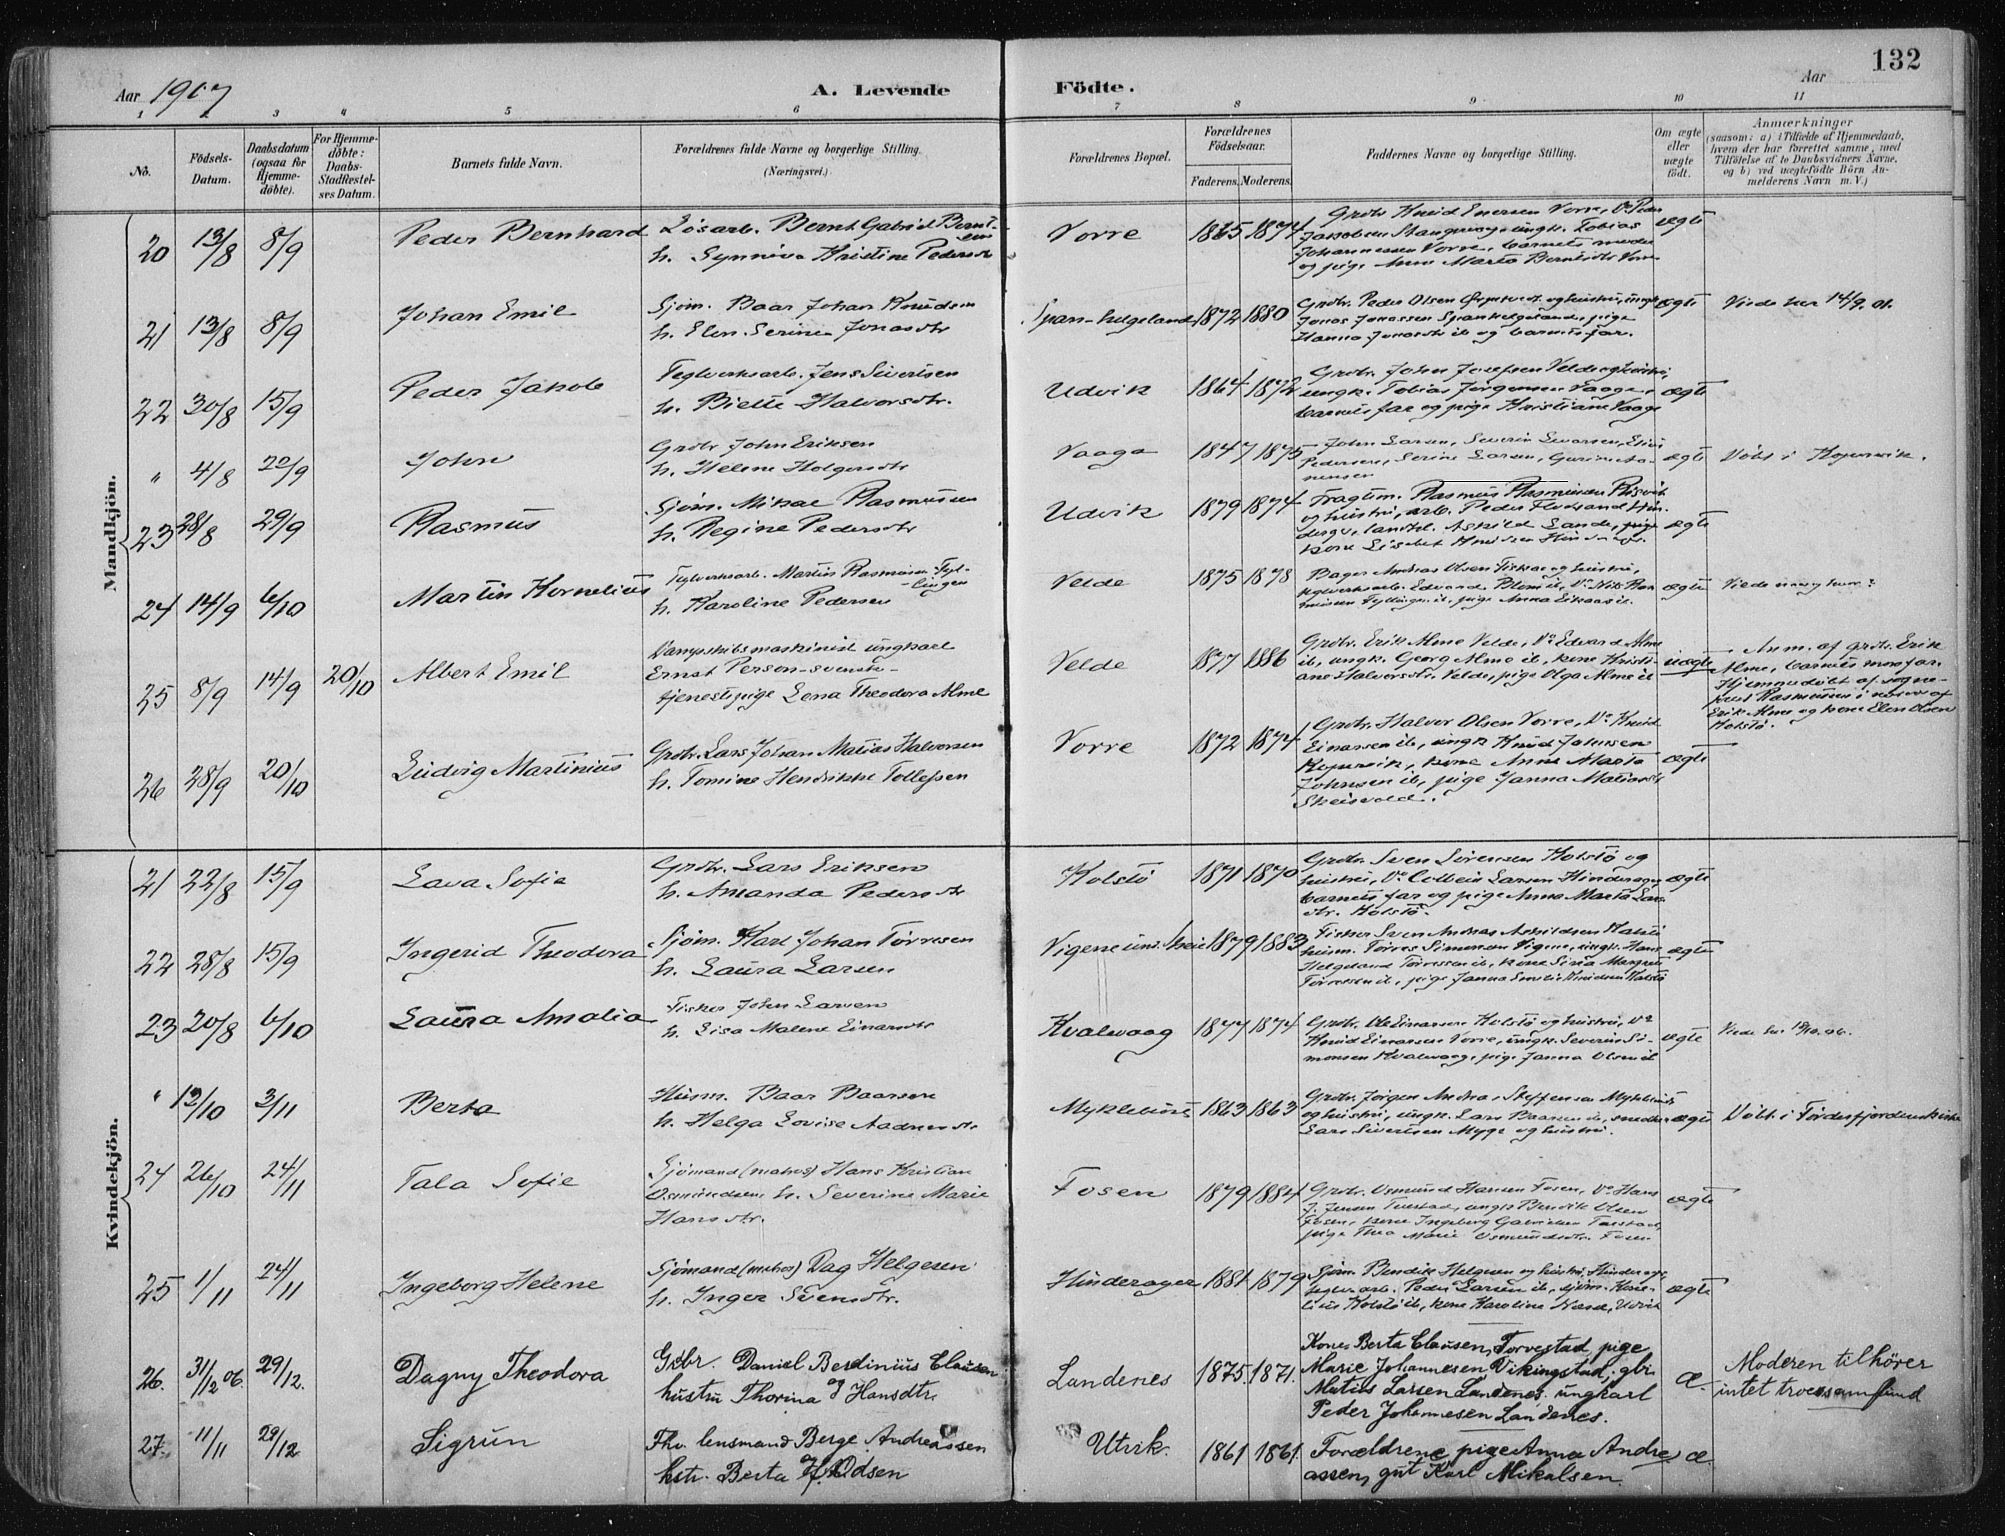 132
Aar 1907
A. Levende
Födte.
Aar
1 2 3 4 5 6 7 8 9 10 11
No.
Födsels-Datum.
Daabsdatum (ogsaa for Hjemme-döbte).
For Hjemme-döbte: Daabs-Stadfæstel-ses Datum.
Barnets fulde Navn.
Forældrenes fulde Navne og borgerlige Stilling.
(Næringsvei.)
Forældrenes Bopæl.
Forældrenes Födselsaar.
Faderens. Moderens.
Faddernes Navne og borgerlige Stilling.
Om ægte eller uægte födt.
Anmærkninger
(saasom: a) i Tilfælde af Hjemmedaab,
hvem der har forrettet samme, med
Tilföielse af to Daabsvidners Navne,
og b) ved uægtefödte Börn An-
melderens Navn m. V.)
Mandkjön.
20 13/8 8/9 Peder Bernhard
Lösarb. Bernt Gabriel Bernt-sen
h. Synniva Kristine Pedersdtr
Vorre 1865 1874
Grdbr Knud Enersen Vorre, Do Peder
Jakobsen Stangevaag, ungk. Tobias
Johannessen Vorre, barnets moder
og pige Anne Marta Berntsdtr Vorre
ægte
21 13/8 8/9 Johan Emil
Sjöm. Baar Johan Knudsen
h. Elen Serine Jonasdtr
Span-helgeland 1872 1880
Grdbr. Peder Olsen og hustru, ungk
Jonas Jonassen Spanhelgeland, pige
Hanna Jonasdtr ib og barnets far.
ægte
Viede her 14/9. 01.
22 30/8 15/9 Peder Jakob
Teglverksarb. Jens Sivertsen
h. Biette Halvorsdtr.
Udvik 1864 1872
Grdbr. John Josefsen Velde og hustru,
ungk. Tobias Jörgensen Vaage,
barnets far og pige Kristiane Vaage
ægte
" 4/8 22/9 John
Grdbr John Eriksen
h. Helene Holgersdtr
Vaage 1847 1875
John Larsen, Severin
Pedersen, Serine Larsen,
ægte
Döbt i Kopervik.
23 28/8 29/9 Rasmus
Sjöm. Mikal Rasmussen
h. Regine Pedersdtr
Udvik 1879 1874
Fragtm. Rasmus Rasmussen
og hustru, arb. Peder
landhl. Askild Lande, pige
kone Lisabet Knudsen
ægte
24 14/9 6/10 Martin Kornelius
Teglverksarb. Martin Rasmussen Fyl-lingen
h. Karoline Pedersen
Velde 1875 1878
Bager Andreas Olsen Fiskaa og hustru,
teglverksarb. Edvard Blom ib, Do Nils Ras-
mussen Fyllingen ib, pige Anna Eikaas ib.
ægte
25 8/9 14/9 20/10 Albert Emil
Dampskibsmaskinist ungkarl
Ernst Person-svenske-
tjenestepige Lena Theodora Alme
Velde 1877 1886
Grdbr. Erik Alme Velde, Do Edvard Alme
ib, ungk. Georg Alme ib, kone Kristi-
ane Halvorsdtr. Velde, pige Olga Alme ib
uægte
Anm. af grdbr. Erik
Alme, barnets morfar.
Hjemmedöbt af sogne-
prest Rasmussen i nærv. af
Erik Alme og kone Elen Olsen
Kolstö.
26 28/9 20/10 Ludvig Martinius
Grdbr. Lars Johan Matias Halvorsen
h. Tomine Henrikke Tollefsen
Vorre 1872 1874
Grdbr. Halvor Olsen Vorre, Do Knud
Einarsen ib, ungk Knud Johnsen
Kopervik, kone Anne Marta
Johnsen ib, pige Janna Matiasdtr
Skeisvold.
ægte
Kvindekjön.
21 22/8 15/9 Lava Sofie
Grdbr. Lars Eriksen
h. Amanda Pedersdtr
Kolstö 1871 1870
Grdbr. Sven Sörensen Kolstö og
hustru, Do Colbein Larsen Hinderager,
barnets far og pige Anna Marta Lars-
dtr. Kolstö.
ægte
22 28/8 15/9 Ingerid Theodora
Sjöm. Karl Johan Törresen
h. Laura Larsen
Vigene und. Skeie 1879 1883
Fisker Sven Andreas Askildsen Kolstö
husm. Törres Simonsen Vigene, ungk. Hans
Helgeland Törressen ib, kone Sina Margrete
Törressen ib, pige Janna Emilie Knudsen Kolstö
ægte
23 20/8 6/10 Laura Amalia
Fisker John Larsen
h. Lisa Malene Einarsdtr
Kvalevaag 1877 1874
Grdbr. Ole Einarsen Kolstö og hustru, Do
Knud Einarsen Vorre, ungk. Severin Si-
monsen Kvalevaag, pige Janna Olsen ib
ægte
" 13/10 3/11 Berta
Husm. Baar Baarsen
h. Helga Lovise Aadnesdtr
Myklebust 1863 1863
Grdbr. Jörgen Andreas Steffensen Myklebust
og hustru, ungk. Lars Baarsen ib, snedker
Lars Sivertsen Myge og hustru.
ægte
Döbt i Fördesfjordens kirke
24 26/10 24/11 Tala Sofie
Sjömand (matros) Hans Kristian
Osmundsen, h. Severine Marie
Hansdtr.
Fosen 1879 1884
Grdbr. Osmund Hansen Fosen, Do Hans
J. Jensen Tuastad, ungk Bendik Olsen
Fosen, kone Ingeborg Gabrielsen Tuastad,
pige Thea Marie Osmundsdtr. Fosen
ægte
25 1/11 24/11 Ingeborg Helene
Sjömand (matros) Dag Helgesen
h. Inger Svensdtr.
Hinderager 1881 1879
Sjöm. Bendik Helgesen og hustru Hinderager,
teglv.arb. Peder Larsen ib, sjöm. Korne-
lius Kolstö ib, kone Karoline Næsse, Udvik
ægte
26. 31/12 06. 29/12. Dagny Theodora
Gdbr. Daniel Berdinius Clausen
og hustru Thorina Hansdtr.
Landenes 1875. 1871.
Kone Berta Clausen, Torvestad, pige
Marie Johannesen Vikingstad, gbr
Matias Larsen Landenes, ungkarl
Peder Johannesen Landenes.
Æ.
Moderen tilhörer
intet troessamfund
27. 11/11 29/12 Sigrun
Fhv. lensmand Berge Andreassen
hstr. Berta H. Olsen
Utvik. 1861 1861.
Forældrene, pige Anna Andre-
assen, gut Karl Mikalsen.
æ.